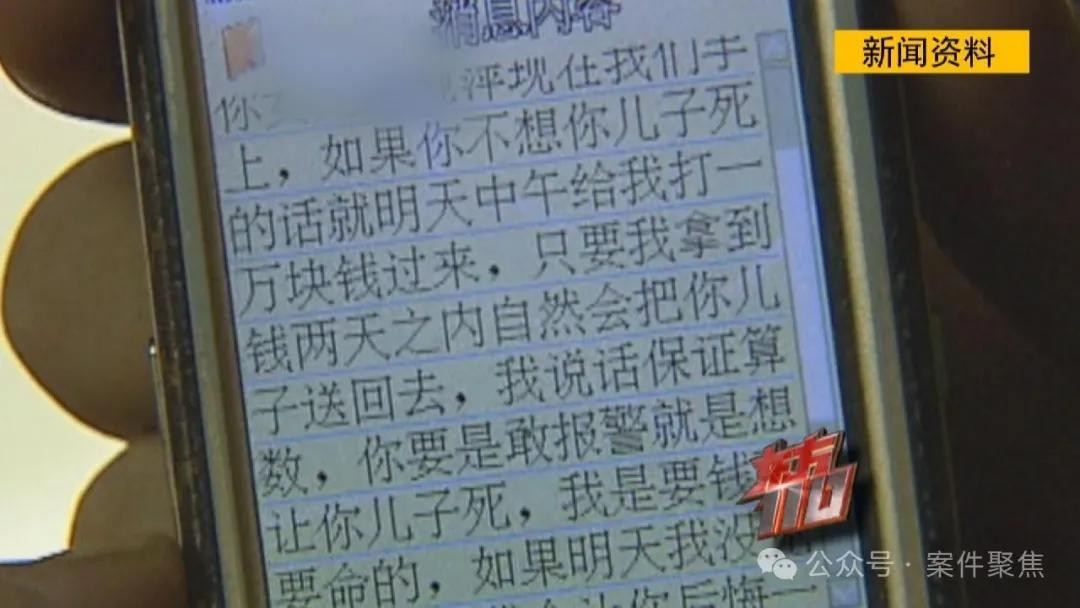 新闻资料
消息内容
你 评现在我们手
上，如果你不想你儿子死
的话就明天中午给我打一
万块钱过来，只要我拿到
钱两天之内自然会把你儿
子送回去，我说话保证算
数，你要是敢报警就是想
让你儿子死，我是要钱
要命的，如果明天我没
让你后悔一
110
公众号·案件聚焦